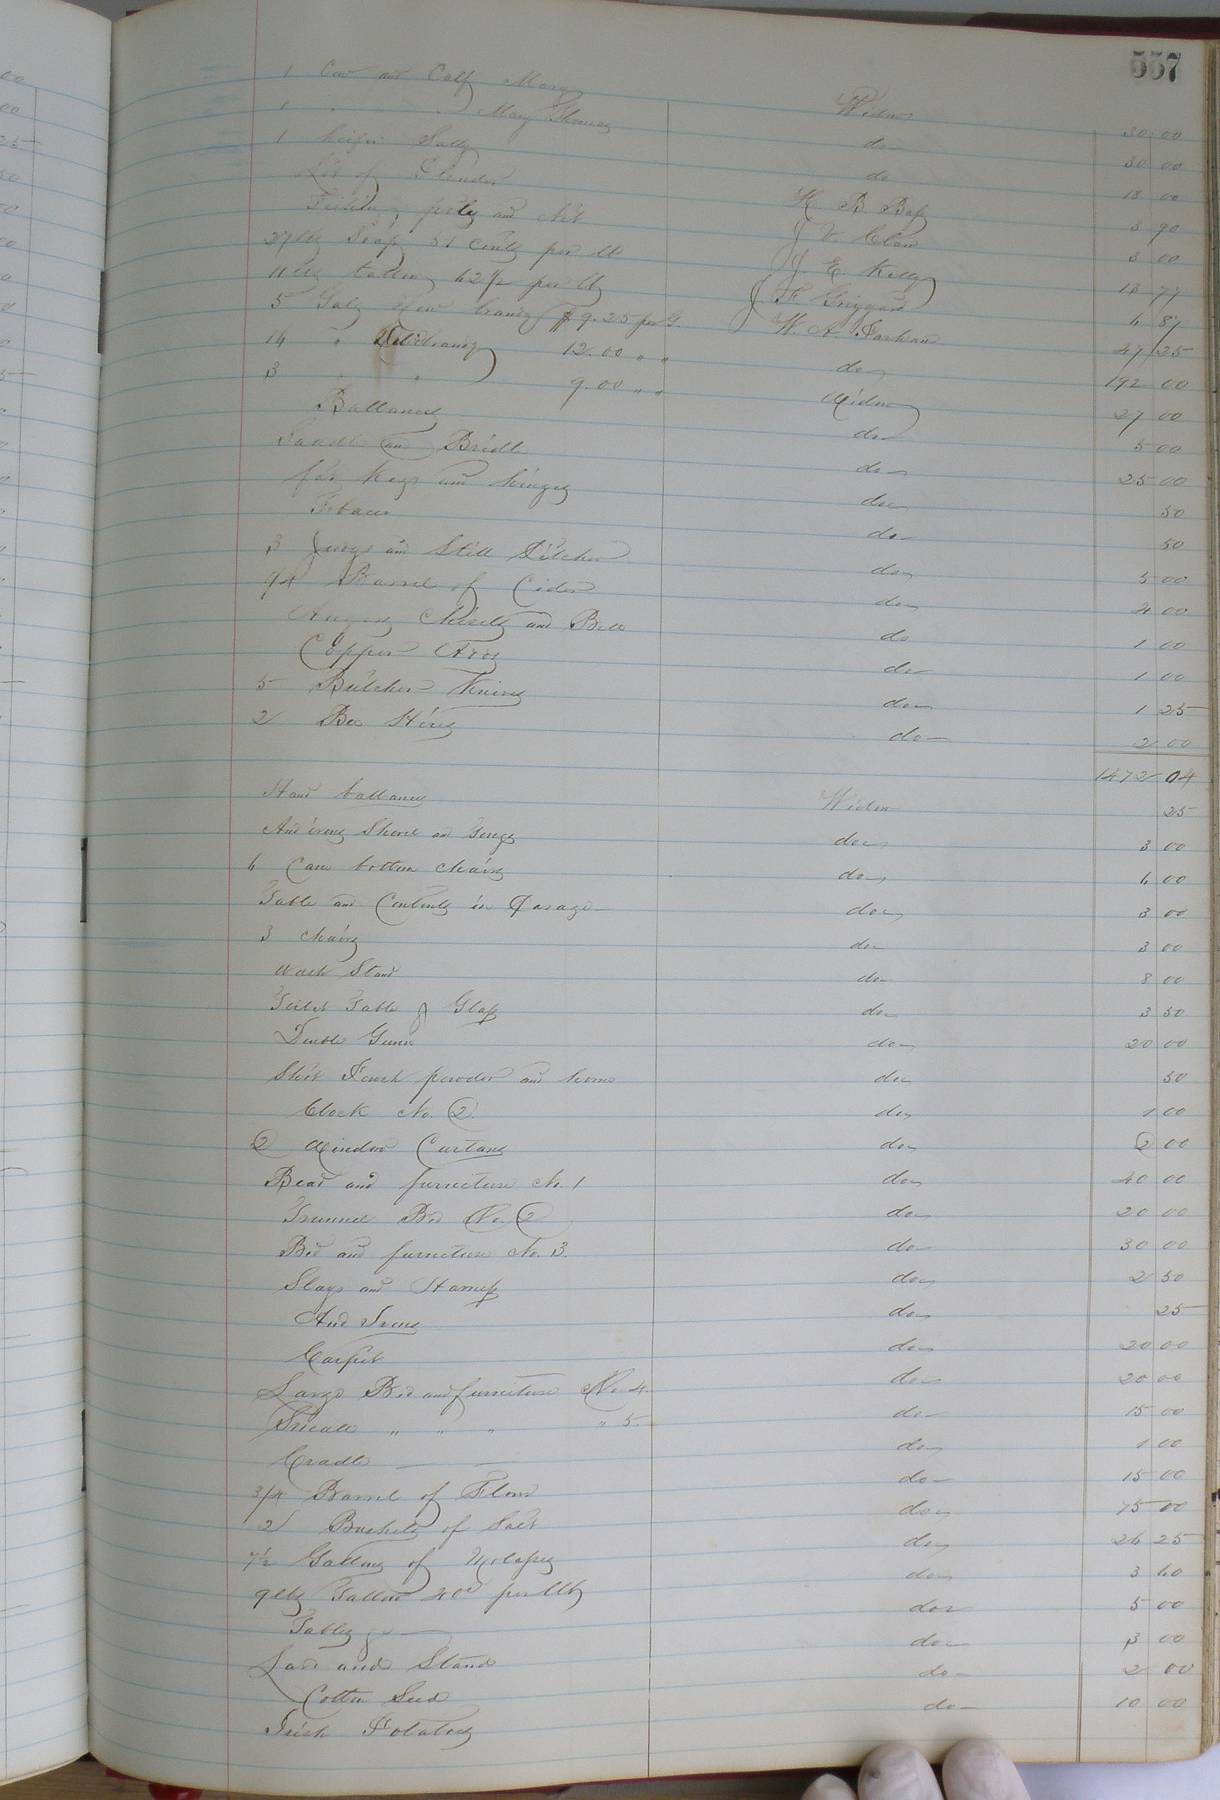 557
1 Cow and Calf Mary Widow 30 00
1 " " " Mary Thomas do 30 00
1 heifer Sally do 18 00
Lot of H B Bass 3 90
and Net J V 3 00
27 lbs Soap 51 Cents per lb J E Kelly 13 77
11 lbs tallow 62 1/2 per lb J F Griggard 6 87
5 Gals New brandy $9.25 per G. W. A. Farham 47 25
16 " Old brandy 12.00 " " do 192 00
3 " " 9.00 " " Widow 27 00
Ballances do 5 00
Saddle and Bridle do 25 00
Keys and hinges do 50
Tobacco do 50
3 Jugs and Still Pitcher do 5 00
1/4 Barrel of Cider do 4 00
Augers Chisels and Bell do 1 00
Copper do 1 00
5 Butcher Knives do 1 25
2 Bee Hives do 2 00
1472 04
Hand ballances Widow 25
And irons Shovel and Tongs do 3 00
6 Cane bottom chairs do 6 00
Table and Contents in Pasage do 3 00
3 chairs do 3 00
Wash Stand do 8 00
Toilet Table & Glass do 3 50
Double Gunn do 20 00
Shot Pouch powder and horn do 50
Clock No. 2 do 1 00
2 Window Curtans do 2 00
Bead and furneture No. 1 do 40 00
Trunnel Bed No. 2 do 20 00
Bed and furneture No. 3. do 30 00
Slays and Harness do 2 50
And Irons do 25
Carpet do 20 00
Large Bed and furniture No. 4. do 20 00
Small " " " " 5. do 15 00
Cradle do 1 00
3/4 Barrel of Flour do 15 00
2 Bushels of Salt do 75 00
7 1/2 Gallons of Molasses do 26 25
9 lbs Tallow 40c per lb do 3 60
Tables do 5 00
and Stand do 3 00
Cotton Seed do 2 00
Irish Potatoes do 10 00